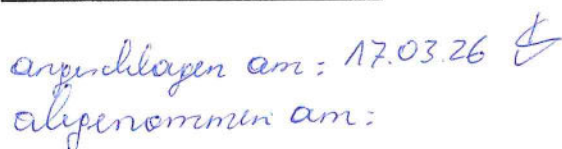 angeschlagen am: 17.03.26
abgenommen am: